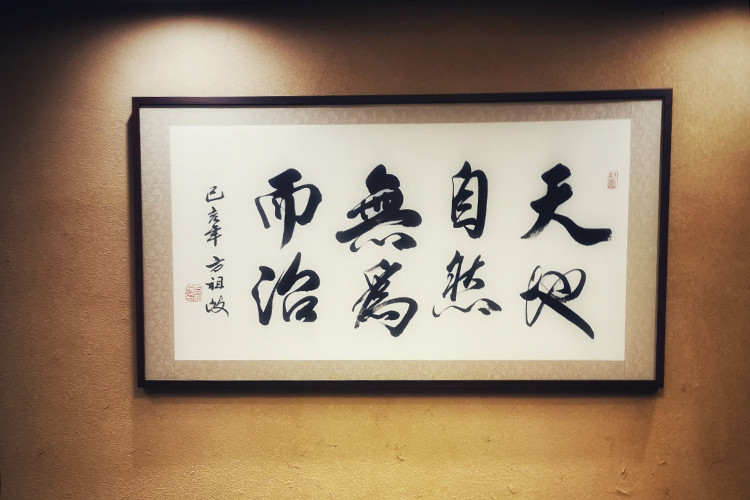 天地
自然
無為
而治
己亥年 方祖岐